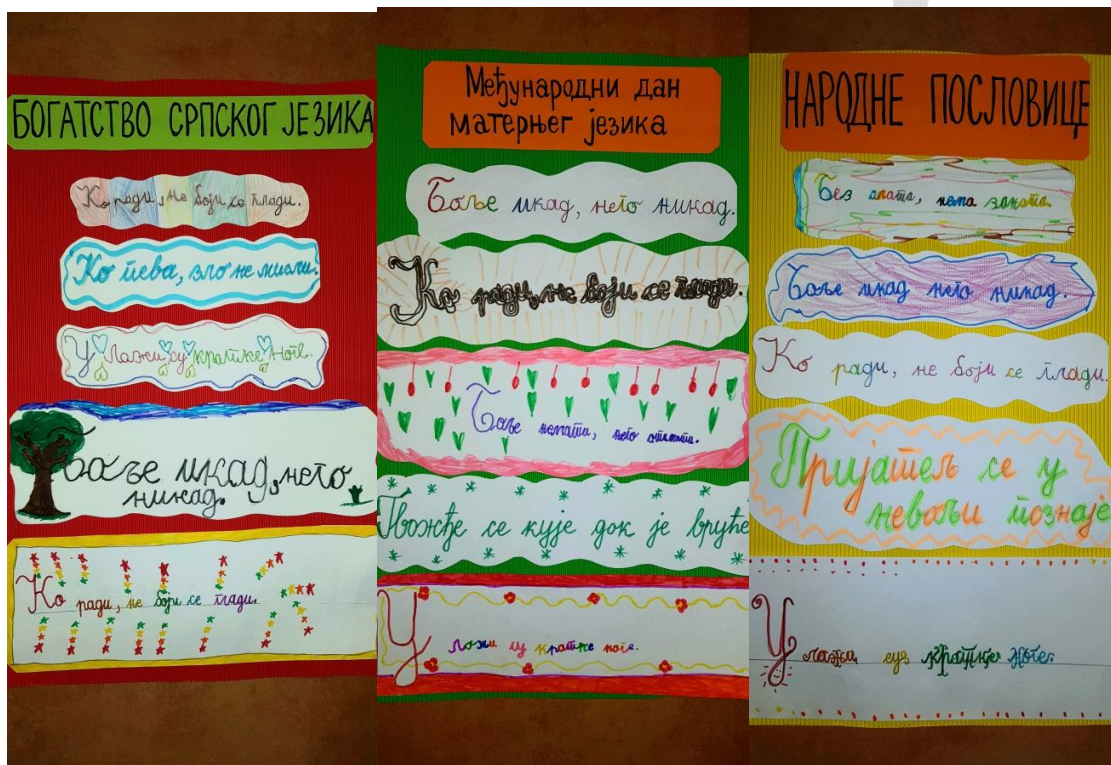 БОГАТСТВО СРПСКОГ ЈЕЗИКА
Ко ради, не боји се глади.
Ко пева, зло не мисли.
У лажи су кратке ноге.
Боље икад, него
никад.
Ко ради, не боји се глади.
Међународни дан
матерњег језика
Боље икад, него никад.
Ко ради, не боји се глади.
Боље немати, него отимати.
Гвожђе се кује док је вруће
У лажи су кратке ноге.
НАРОДНЕ ПОСЛОВИЦЕ
Без алата, нема заната.
Боље икад него никад.
Ко ради, не боји се глади.
Пријатељ се у
невољи познаје
У лажи су кратке ноге.